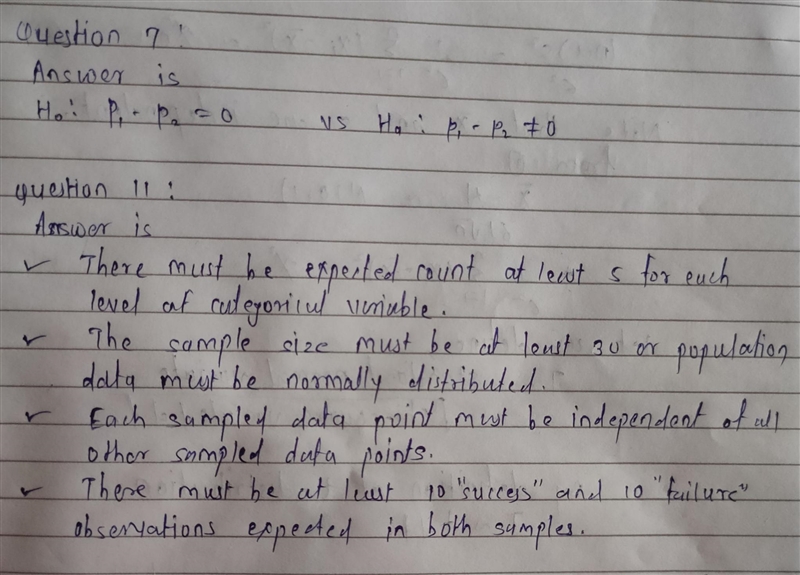 Question 7 :
Answer is
H₀ : p₁ - p₂ = 0 vs Hₐ : p₁ - p₂ ≠ 0
question 11 :
Answer is
✓ There must be expected count at least 5 for each
level of categorical variable.
✓ The sample size must be at least 30 or population
data must be normally distributed.
✓ Each sampled data point must be independent of all
other sampled data points.
✓ There must be at least 10 "success" and 10 "failure"
observations expected in both samples.